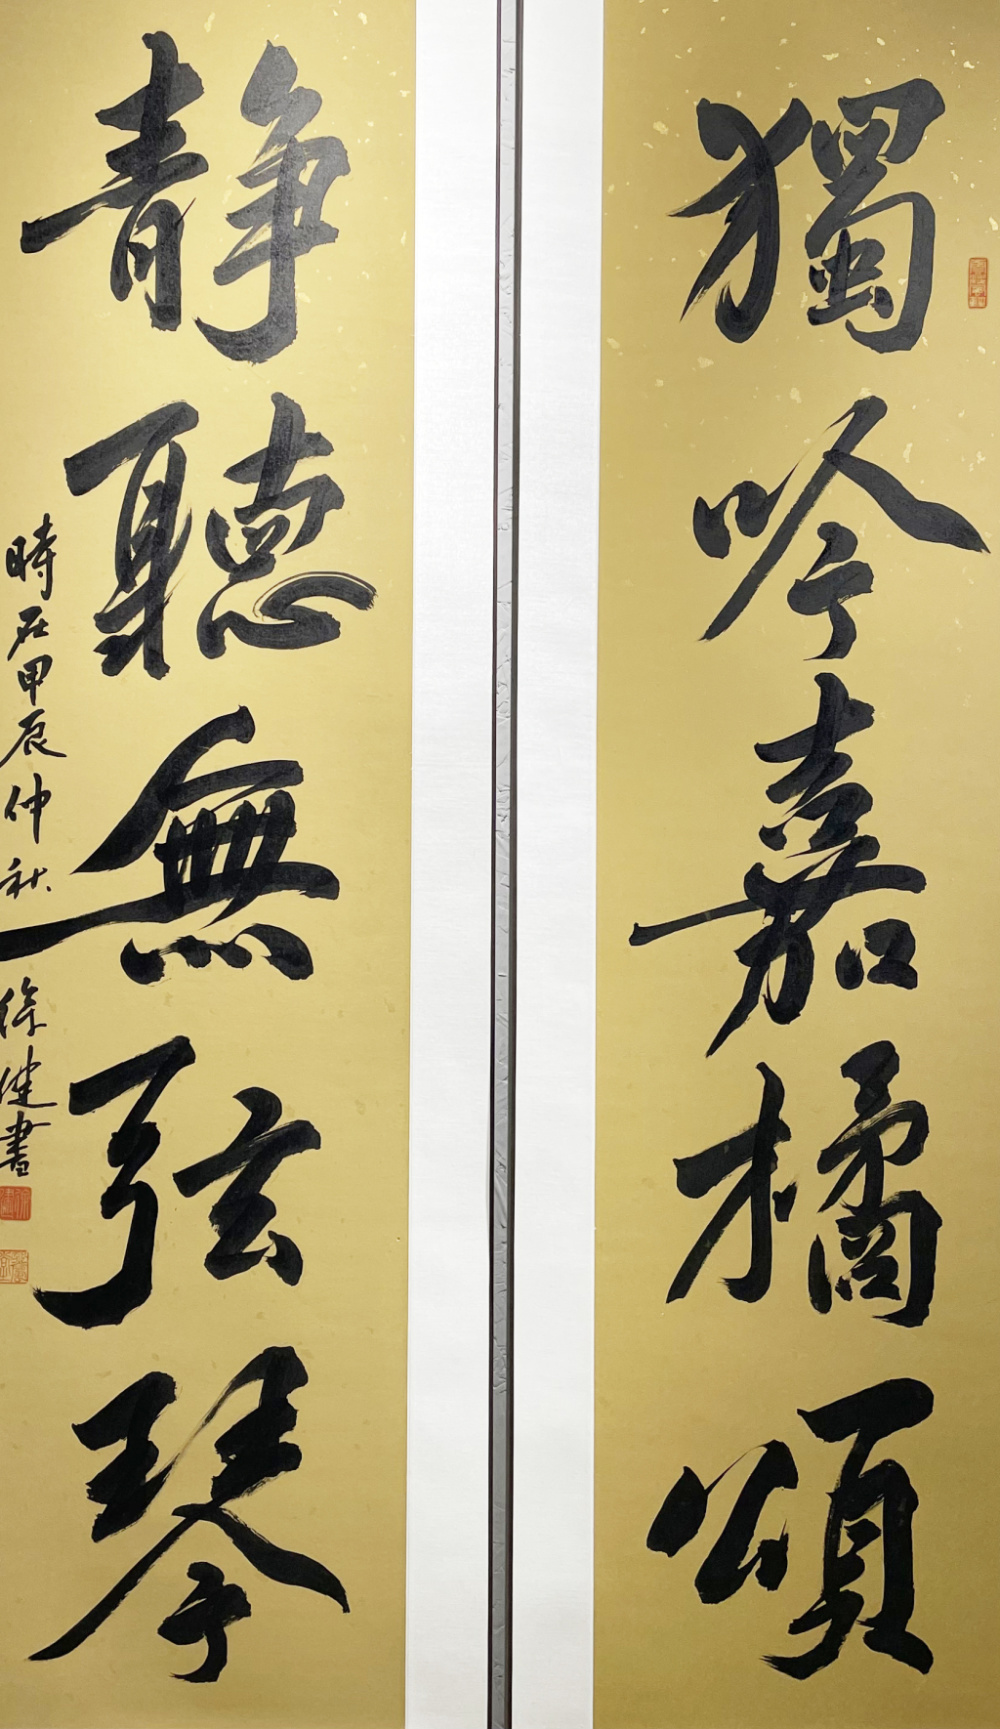 獨吟嘉橘頌
靜聽無弦琴
時在甲辰仲秋 徐健書